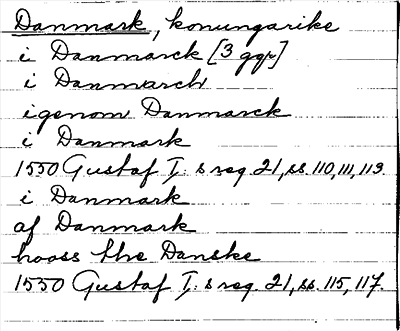 Danmark, konungarike
i Danmarck [3 ggr]
i Danmarch
igenom Danmarck
i Danmark
1550 Gustaf I:s reg. 21, ss. 110, 111, 113.
i Danmark
af Danmark
hooss the Danske
1550 Gustaf I:s reg. 21, ss. 115, 117.